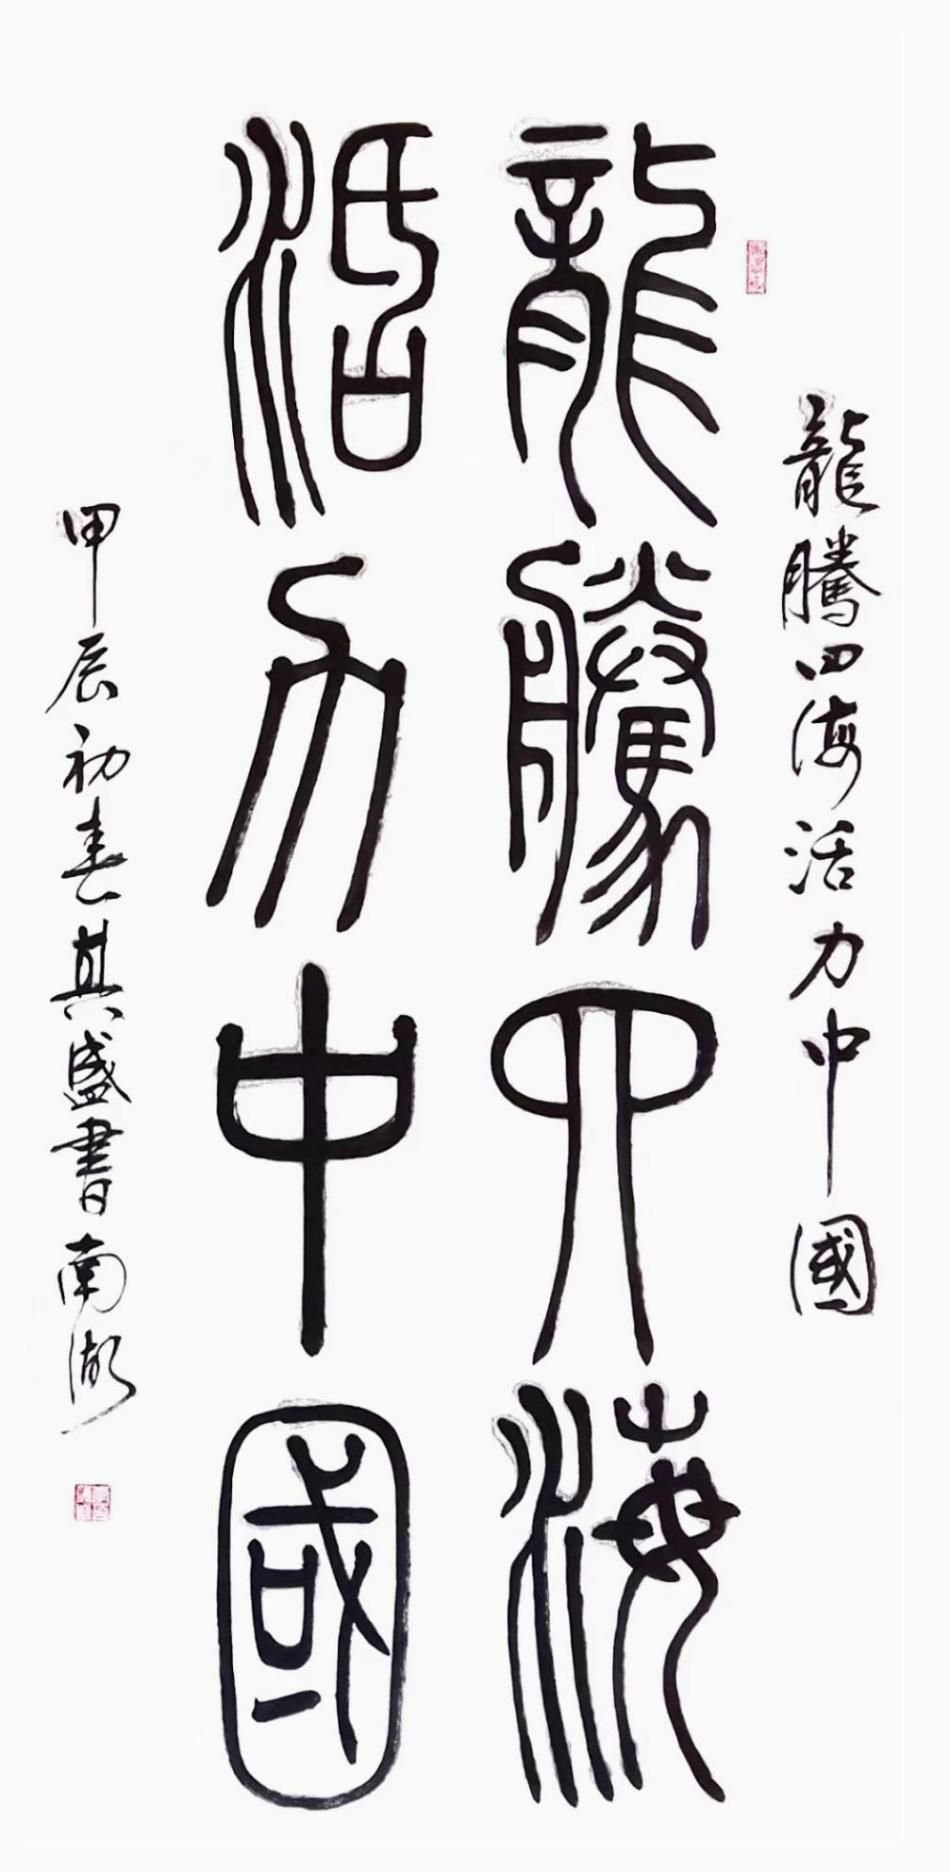 龍騰四海活力中國
龍騰四海
活力中國
甲辰初春其盛書南湖